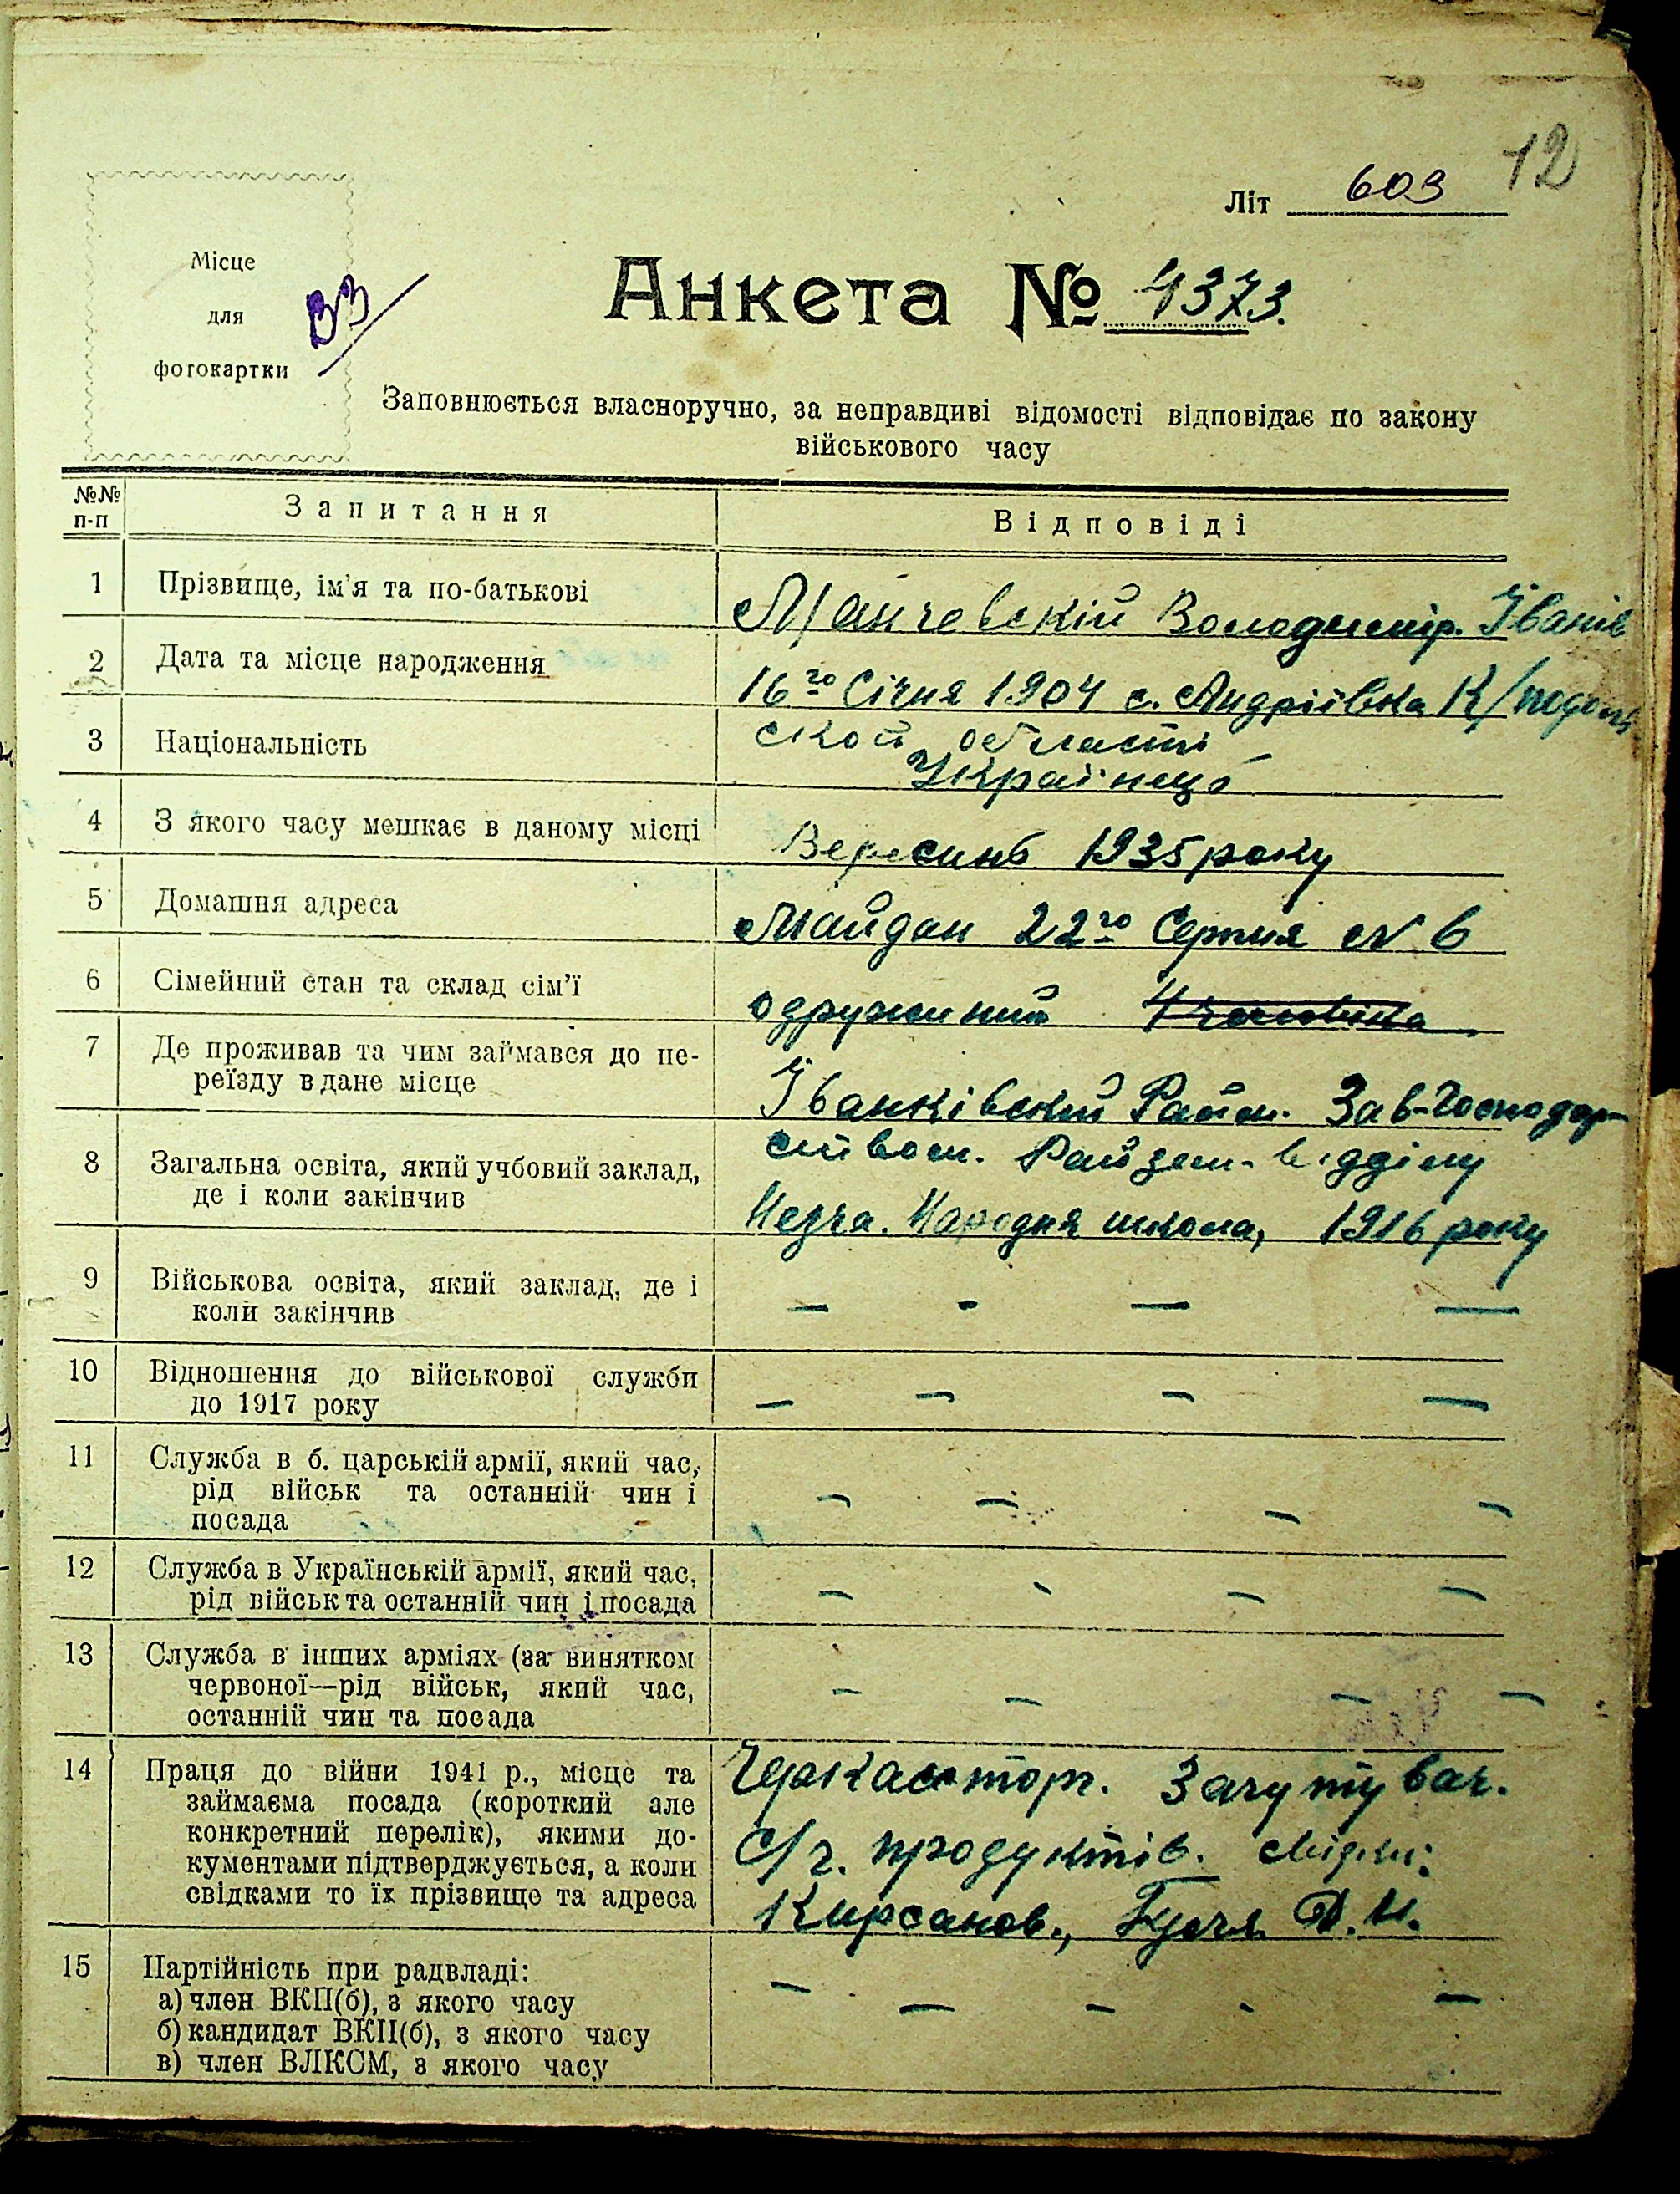 12
Літ 603
Місце
для
фотокартки
33
Анкета № 4373.
Заповнюється власноручно, за неправдиві відомості відповідає по закону
військового часу
№№ п-п Запитання Відповіді
1 Прізвище, ім'я та по-батькові
Володимір. Їванів
2 Дата та місце народження
16го Січня 1904 с. Андріївка К/подоль
3 Національність
ской області
Українець
4 З якого часу мешкає в даному місці
Вересинь 1935 року
5 Домашня адреса
Майдан 22го Серпня № 6
6 Сімейний стан та склад сім'ї
одружиний
7 Де проживав та чим займався до пе-
реїзду в дане місце
Їванківский Район. Зав-Господар
ством. Райзем. відділу
8 Загальна освіта, який учбовий заклад,
де і коли закінчив
Народня школа, 1916 року
9 Військова освіта, який заклад, де і
коли закінчив
— - — —
10 Відношення до військової служби
до 1917 року
— — — —
11 Служба в б. царській армії, який час,
рід військ та останній чин і
посада
— — — —
12 Служба в Українській армії, який час,
рід військ та останній чин і посада
— - — —
13 Служба в інших арміях (за винятком
червоної—рід військ, який час,
останній чин та посада
— — — —
14 Праця до війни 1941 р., місце та
займаєма посада (короткий але
конкретний перелік), якими до-
кументами підтверджується, а коли
свідками то їх прізвище та адреса
Черкасторг.
С/г. продуктів. свідки:
Кирсанов.,
15 Партійність при радвладі:
а) член ВКП(б), з якого часу
б) кандидат ВКП(б), з якого часу
в) член ВЛКСМ, з якого часу
— — - - —